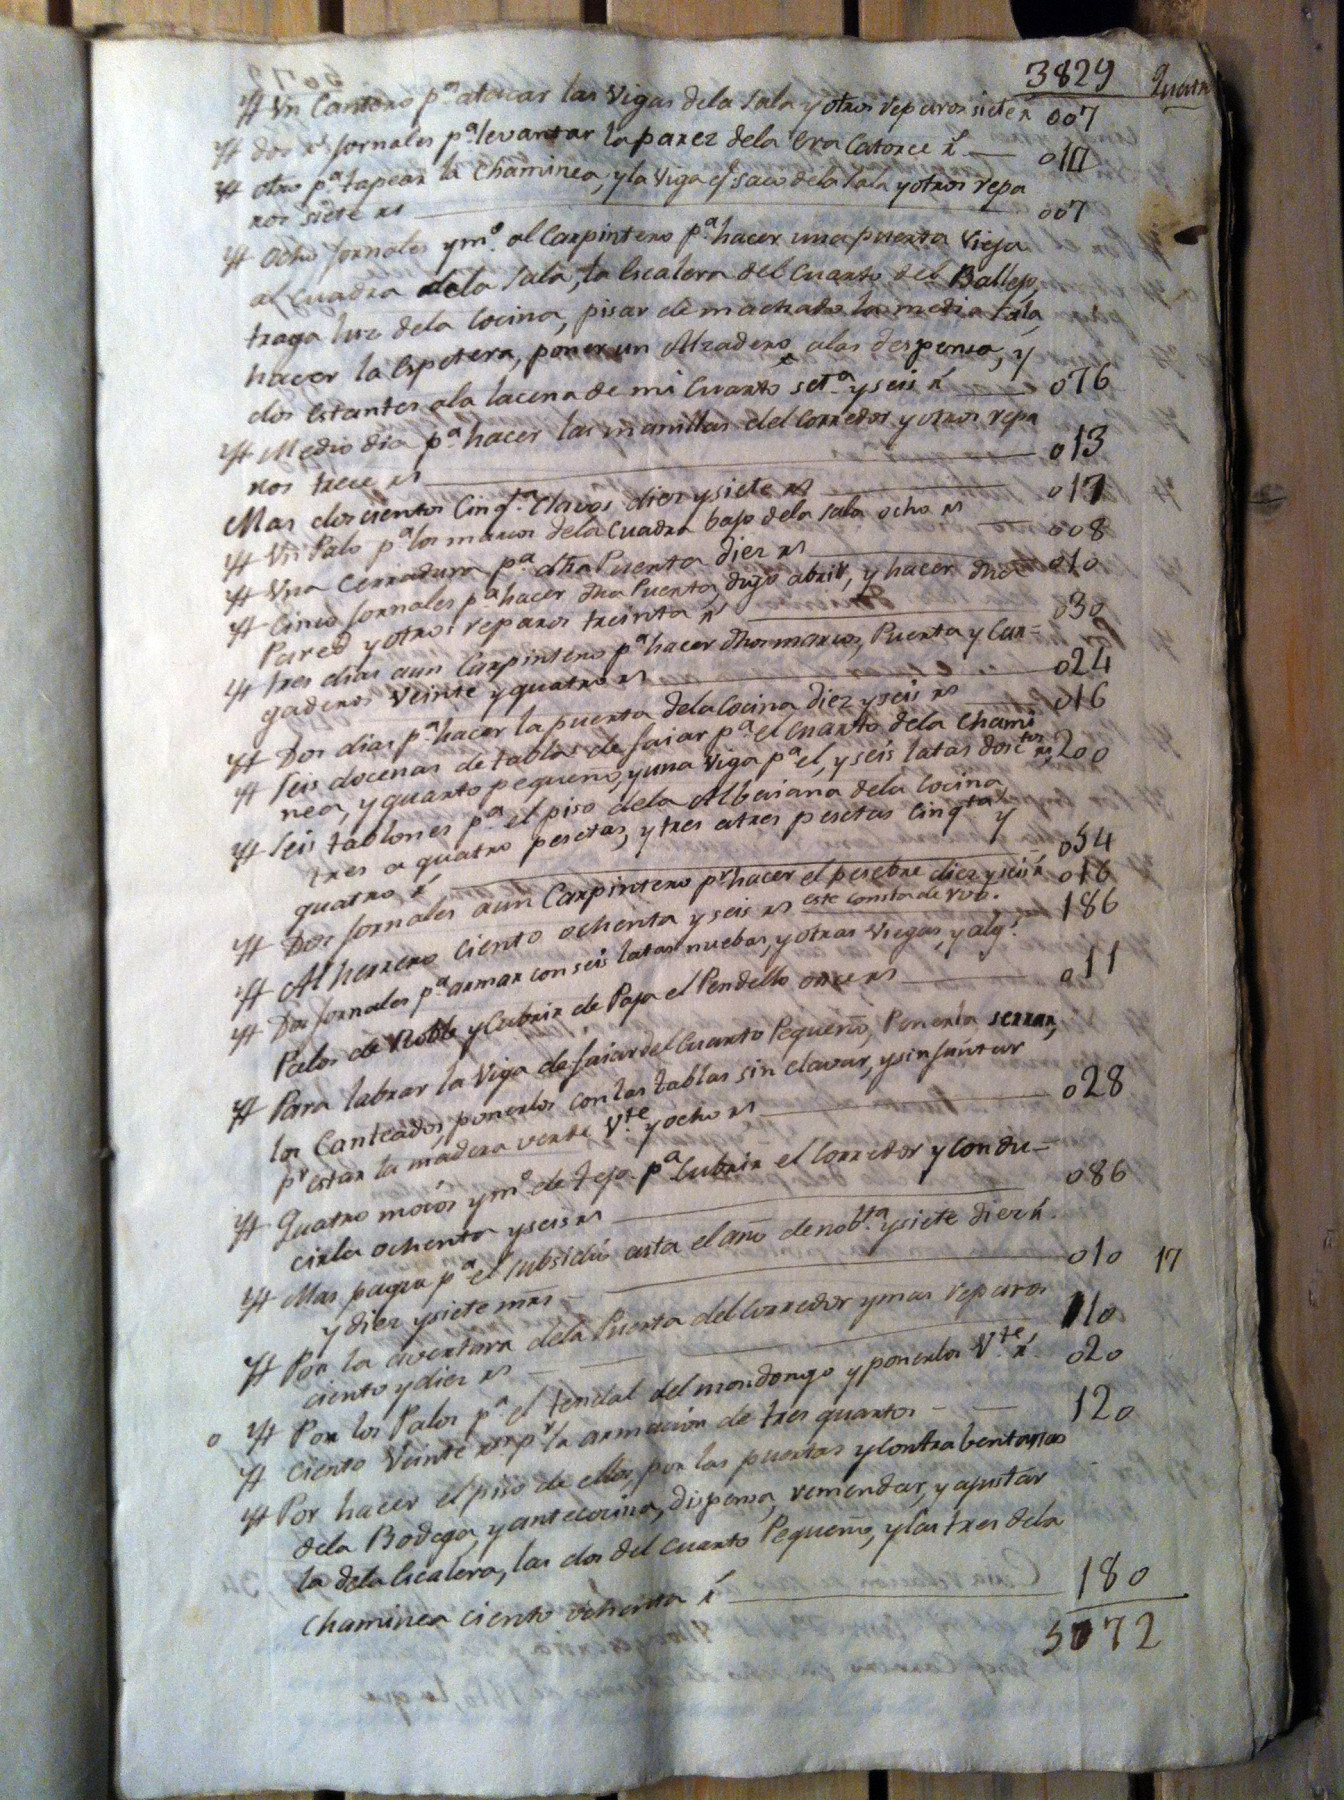 3829 Quart
# Vn Cantero pª atacar las Vigas dela sala y otros reparos siete rˢ 007
# dos rˢ Jornales pª levantar la parez dela Era Catorce rˢ — 014
# otro pª tapear la Chaminea, y la Viga q̃ saco dela sala y otros repa
ros siete rs 007
# Ocho Jornales y mº al Carpintero pª hacer una puerta Vieja
al Cuadra dela sala, la Escalera del Cuarto del Ballejo,
traga luz dela Cocina, pisar de machado la media sala,
hacer la Espetera, poner un Alzadero alas despensa, y
dos estantes ala lacena de mi Cuarto setª y seis rˢ — 076
# Medio dia pª hacer las manillas del Corredor y otros repa
ros trece rs 013
Mas doscientos Cinqtª Clavos diez y siete rs 017
# Vn Palo pª los marcos dela Cuadra bajo dela sala ocho rs 008
# Vna Cerradura pª otra Puerta diez rs 010
# Cinco Jornales pª hacer dha Puerta, digo abrir, y hacer dha
Pared y otros reparos treinta rˢ 030
# tres dias aun Carpintero pª hacer dhos marcos, Puerta y Car=
gaderos Veinte y quatro rs 024
# Dos dias pª hacer la puerta dela Cocina diez y seis rs 016
# Seis docenas de tablas de faiar pª el Cuarto dela Chami
nea, y quarto pequeño, y una Viga pª el, y seis latas dosctos rs, 200
# Seis tablones pª el piso dela Alberiana dela Cocina
tres a quatro pesetas, y tres atres pesetas Cinqta y
quatro rˢ 054
# Dos Jornales aun Carpintero pr hacer el pesebre diez y seis rˢ 016
# Al herrero ciento ochenta y seis rs este consta de rvo. 186
# Dos Jornales pª armar con seis latas nuebas, y otras Viegas, y algs
Palos de Roble y Cubrir de Paja el Pendello once rs 011
# Para labrar la Viga de faiar del Cuarto Pequeño, Ponerla serrar,
los Canteados, ponerlos con las tablas sin clavar, y sin juntar
pr estar la madera verde Vte y ocho rs 028
# Quatro mocos y mº de teja pª Cubrir el Corredor y Condu=
cirla ochenta y seis rs 086
# Mas pagar pª el subsidio asta el año de nobtª y siete diez rˢ
y diez y siete mrs – 010 17
# Por la avertura dela Puerta del Corredor y mas reparos
ciento y diez rs 110
o # Por los Palos pª el tendal del mondongo y ponerlos Vte rˢ 020
# Ciento Veinte rs pr la armacion de tres quartos – — 120
# Por hacer el piso de ellos, por las puertas y Contrabentanas
dela Bodega, y antecocina, dispensa, remendar, y ajustar
la dela Escalera, las dos del Cuarto Pequeño, y las tres dela
Chaminea Ciento ochenta rˢ 180
5072